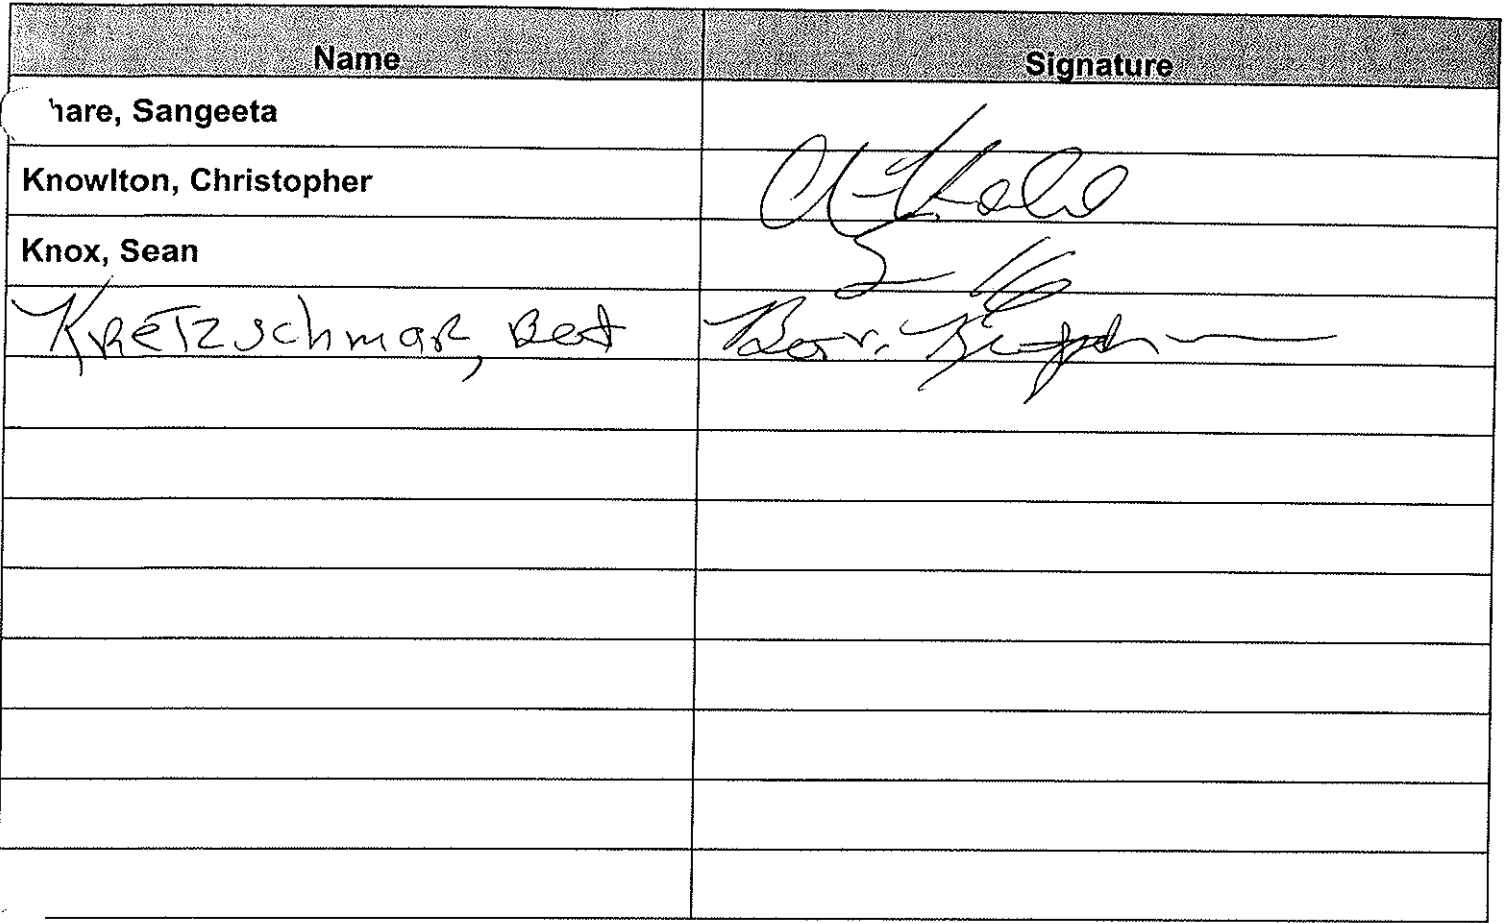 Name Signature
hare, Sangeeta
Knowlton, Christopher
Knox, Sean
Kretzschmar, Bert